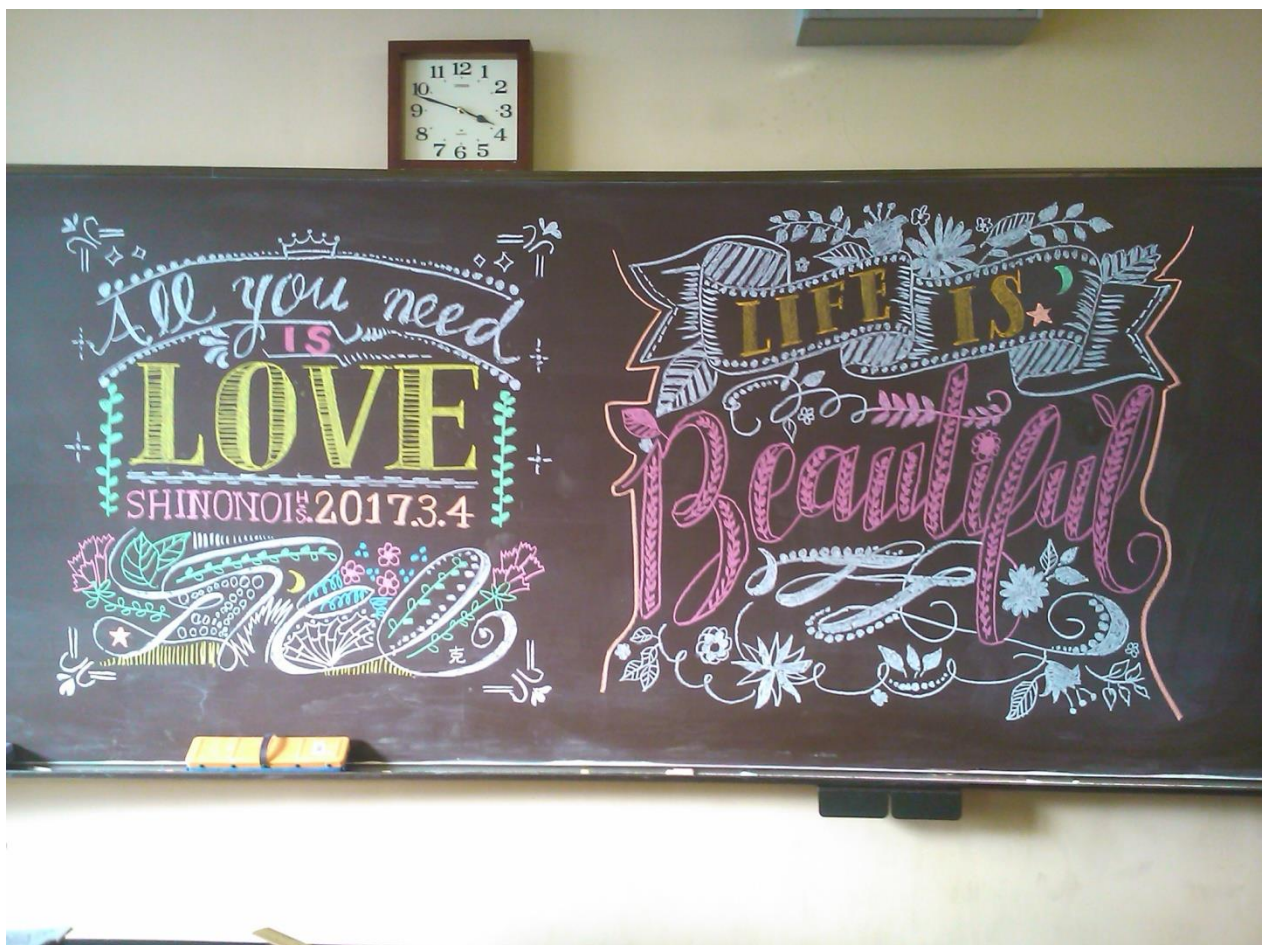 11 12 1
10 2
9 3
8 4
7 6 5
All you need
IS
LOVE
SHINONOI H.S. 2017.3.4
克
LIFE IS
Beautiful